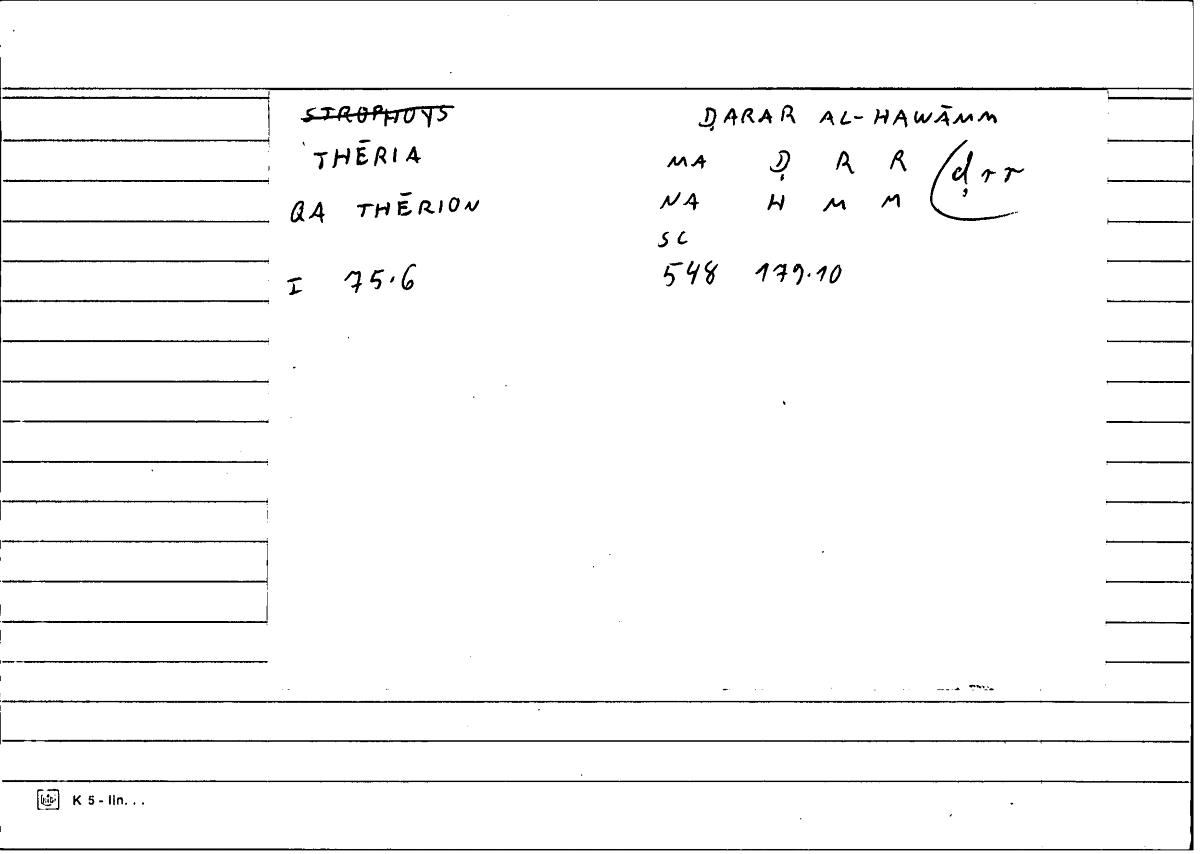 STROPHOYS ḌARAR AL-HAWĀMM
THĒRIA MA Ḍ R R (ḍrr
QA THĒRION NA H M M
SC
I 75.6 548 179.10
K 5 - lin. . .